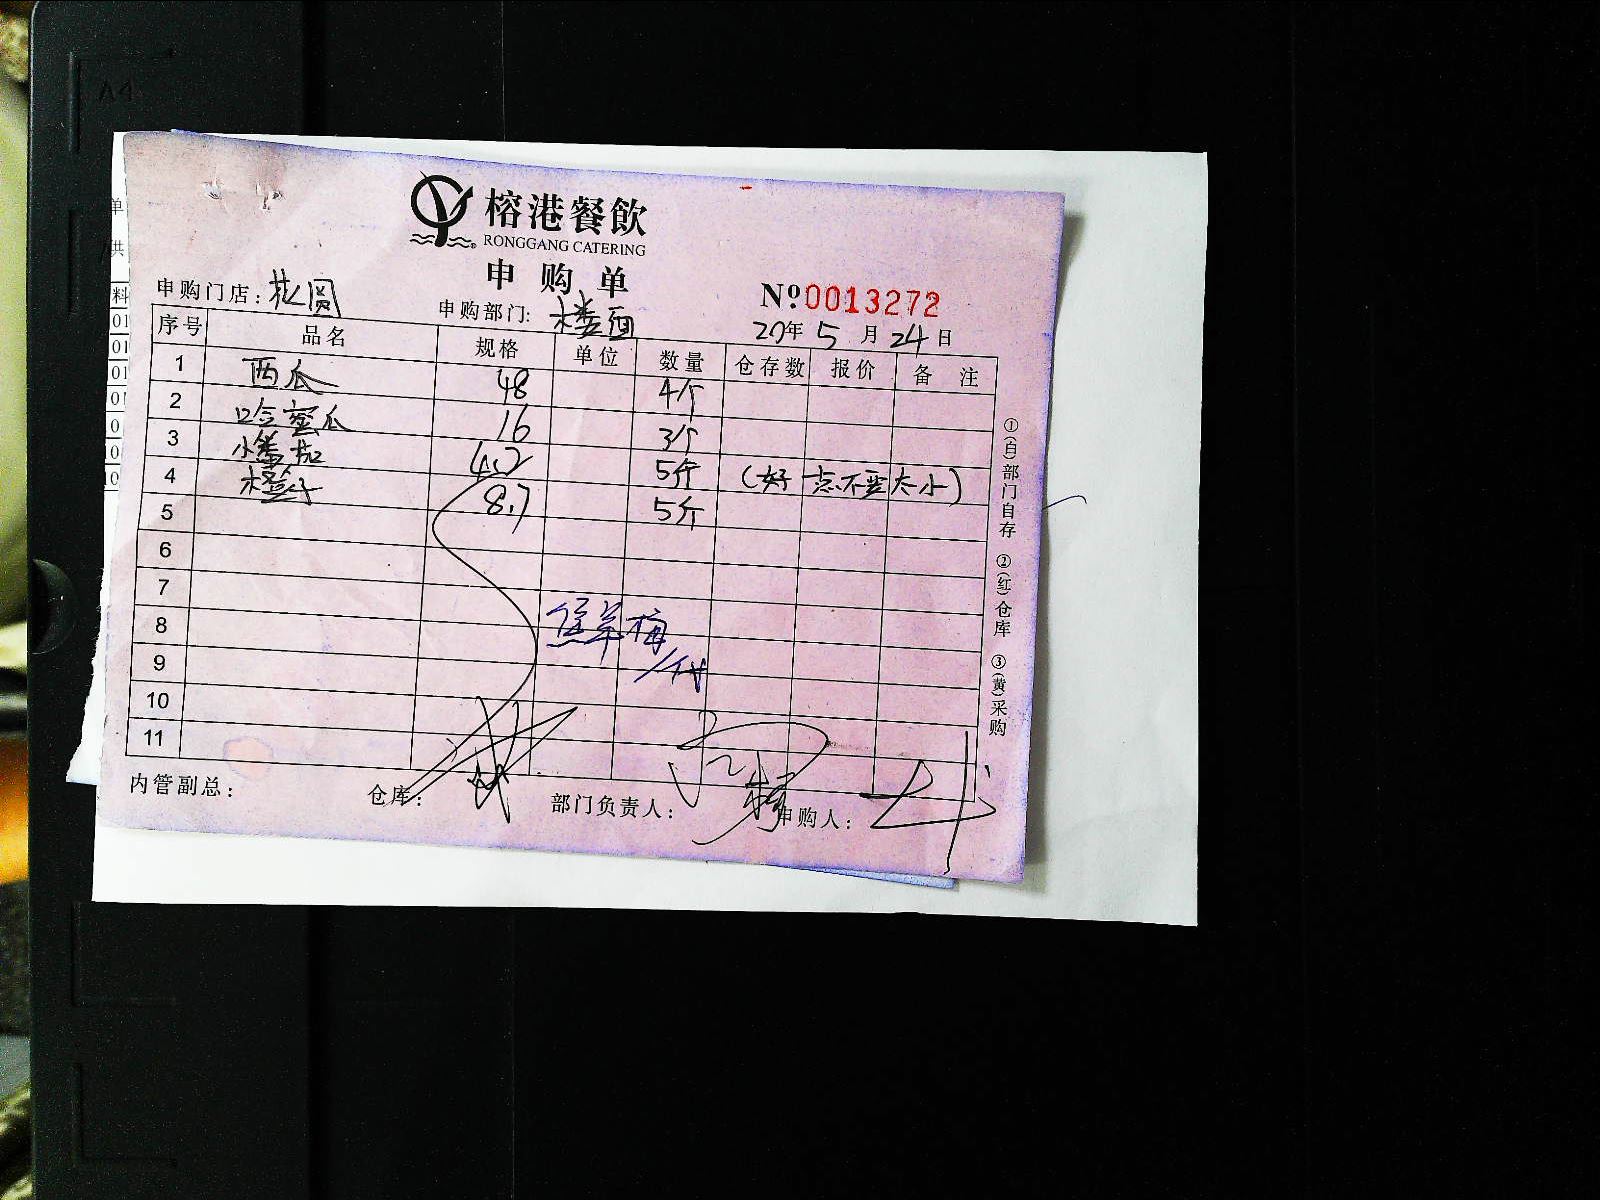 A4
榕港餐飲
RONGGANG CATERING
申购单
№0013272
申购门店：
申购部门：楼面
20 年 5 月 24 日
序号 品名 规格 单位 数量 仓存数 报价 备注
1 西瓜 48 4个
2 哈蜜瓜 16 3个
3 小番茄 4.2 5斤 (好一点不要太小)
4 橙子 8.7 5斤
5
6
7
8
9
10
11
内管副总：
仓库：
部门负责人：
申购人：
①(白)部门自存 ②(红)仓库 ③(黄)采购
单
共
料
01
01
01
01
0
10
10